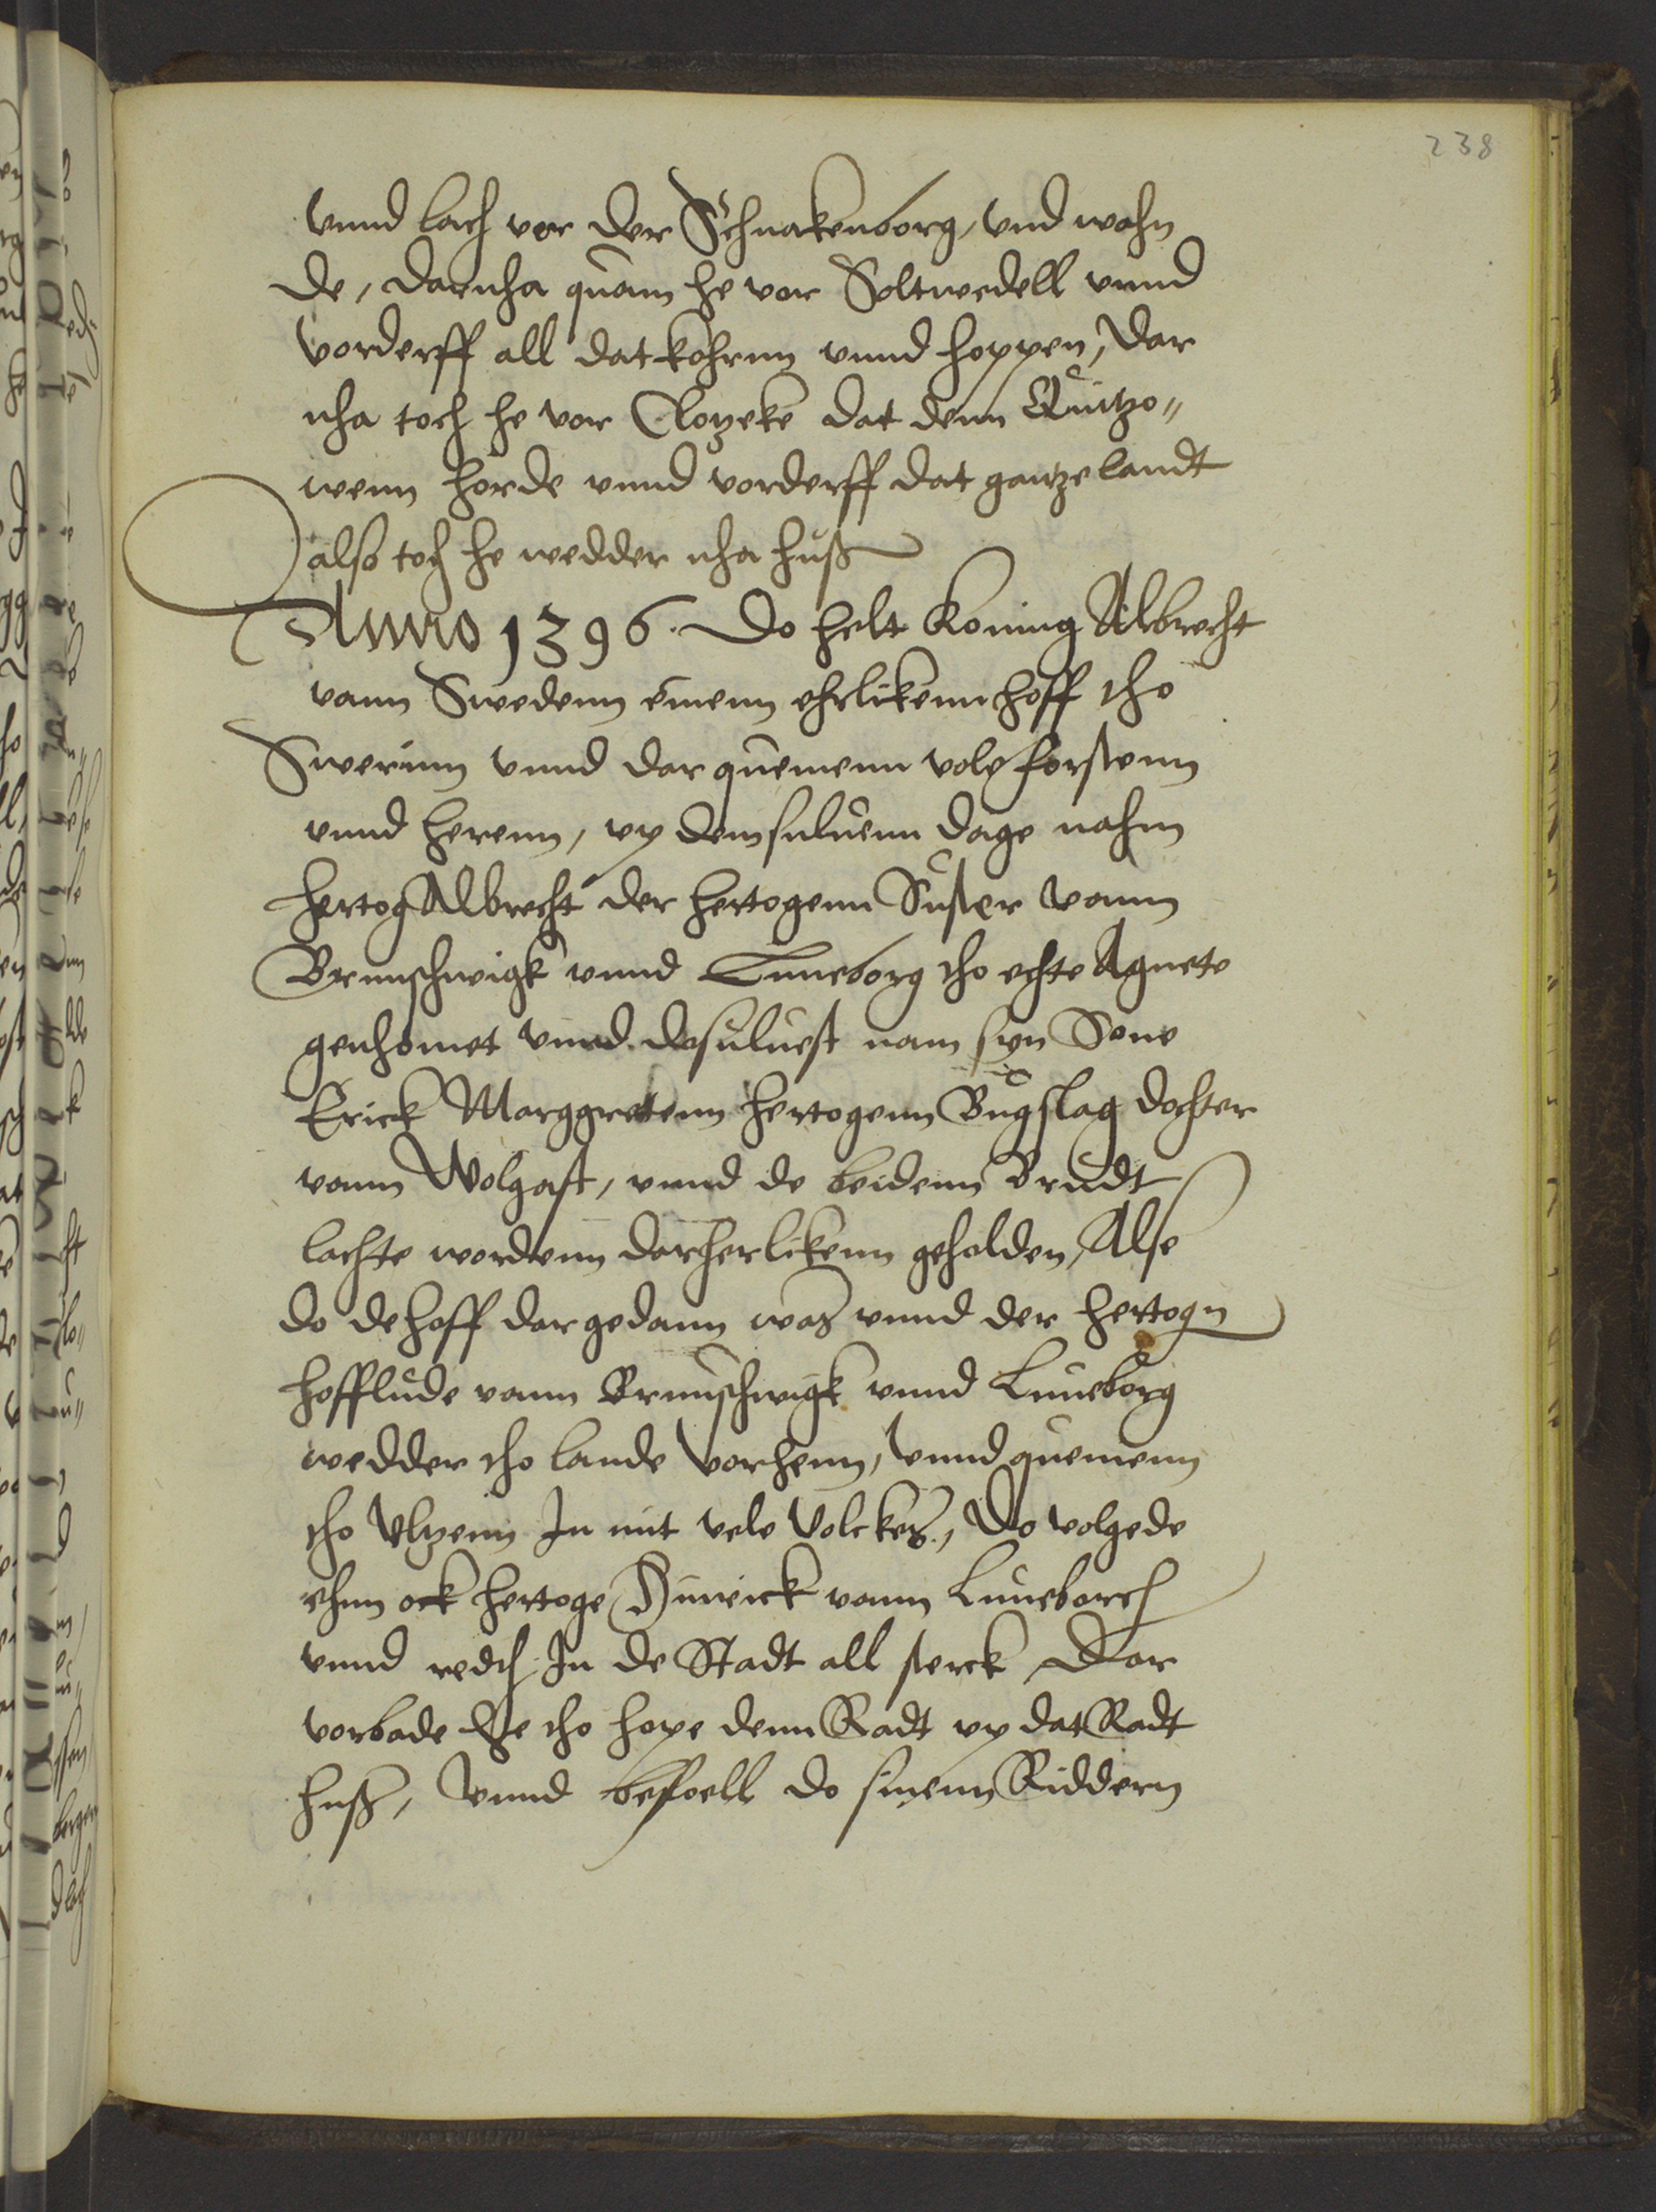 238
vnnd lach vor der Schnakenborg, vnd wahn
de, darnha quam he vor Soltwedell vnnd
vorderff all dat kohrnn vnnd hoppen, Dar
nha toch he vor Clotzeke dat denn Quitzo„
wenn horde vnnd vorderff dat gantze landt
also toch he wedder nha huß
Anno 1396. Do helt Koning Albrecht
vann Swedenn einenn ehrlikenn hoff tho
Swerinn vnnd dar quemenn vele forstenn
vnnd herenn, vp demsuluenn dage nahm
hertog Albrecht der hertogenn Suster vann
Brunschwigk vnnd Luneborg tho echte Agnete
genhomet vnnd dasuluest nam syn Sone
Erick Marggretenn hertogenn Bugslag dochter
vann Wolgast, vnnd de beidenn Brudt
lachte wordenn dar herlikenn geholden, Alse
do de hoff dar gedann was vnnd der hertogn
hofflude vann Brunschwigk vnnd Luneborg
wedder tho lande vorhenn, vnnd quemenn
tho Vlzenn In mit vele Volckes, Do volgede
ehnn ock hertoge Hinrick vann Luneborch
vnnd redth In de Stadt all sterck Dar
vorbade He tho hope denn Radt vp dat Radt
huß, Vnnd befoell do sinenn Riddern